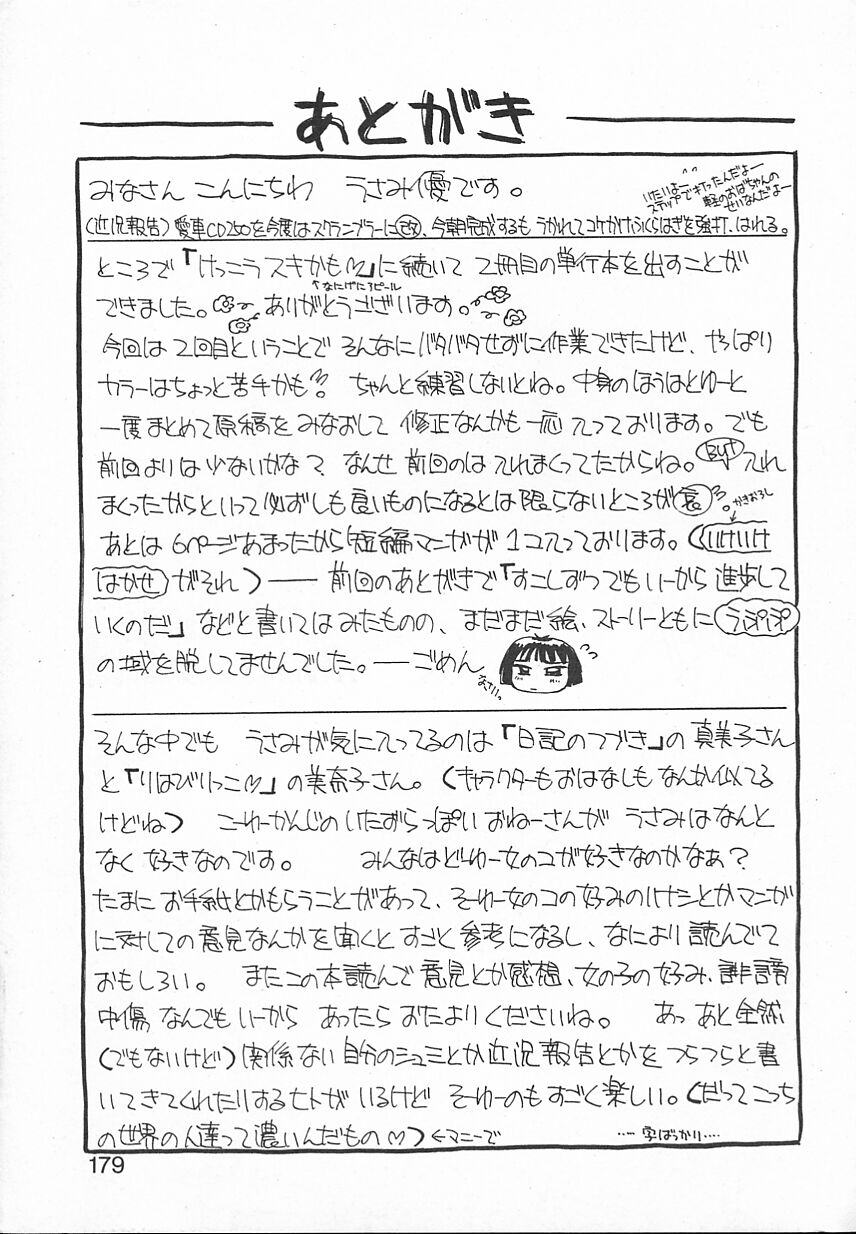 あとがき
みなさん こんにちわ うさみ優です。
いたいよー
ステップで打ったんだよー
軽のおばちゃんの
せいなんだよー
(近況報告)愛車CD250を今度はスクランブラーに改、今朝完成するも うかれてコケかけふくらはぎを強打、はれる。
ところで「けっこうスキかも♡」に続いて 2冊目の単行本を出すことが
↑なにげにろピール
できました。 ありがとうございます。
今回は2回目ということで そんなにバタバタせずに作業できたけど、やっぱり
カラーはちょっと苦手かも。 ちゃんと練習しないとね。中身のほうはとゆーと
一度まとめて原稿をみなおして 修正なんかも一応入っております。でも
前回よりは少ないかな? なんせ前回のは入れまくってたからね。But 入れ
まくったからといって必ずしも良いものになるとは限らないところが哀。
かきおろし
あとは6ページあまったから短編マンガが1コ入っております。(いけいけ
はかせがそれ)── 前回のあとがきで「すこしずつでもいーから進歩して
いくのだ」などと書いてはみたものの、まだまだ絵、ストーリーともにうぷぷ
の域を脱してませんでした。──ごめん
なさい。
そんな中でも うさみが気に入ってるのは「日記のつづき」の真美子さん
と「りはびりっこ♡」の美奈子さん。(キャラクターもおはなしもなんか似てる
けどね) こーゆーかんじのいたずらっぽいおねーさんが うさみはなんと
なく好きなのです。 みんなはどーゆー女のコが好きなのかなぁ?
たまにお手紙とかもらうことがあって、そーゆー女のコの好みのハナシとかマンガ
に対しての意見なんかを聞くとすごく参考になるし、なにより読んでて
おもしろい。 またこの本読んで意見とか感想、女の子の好み、誹謗
中傷なんでもいーから あったらおたよりくださいね。 あっ あと全然
(でもないけど)関係ない自分のシュミとか近況報告とかをつらつらと書
いてきてくれたりするヒトがいるけど そーゆーのもすごく楽しい。(だってこっち
の世界の人達って濃いんだもの♡)←マニーで
……字ばっかり……
179